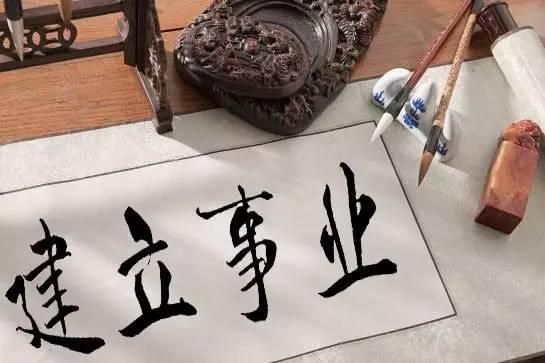 建立事业